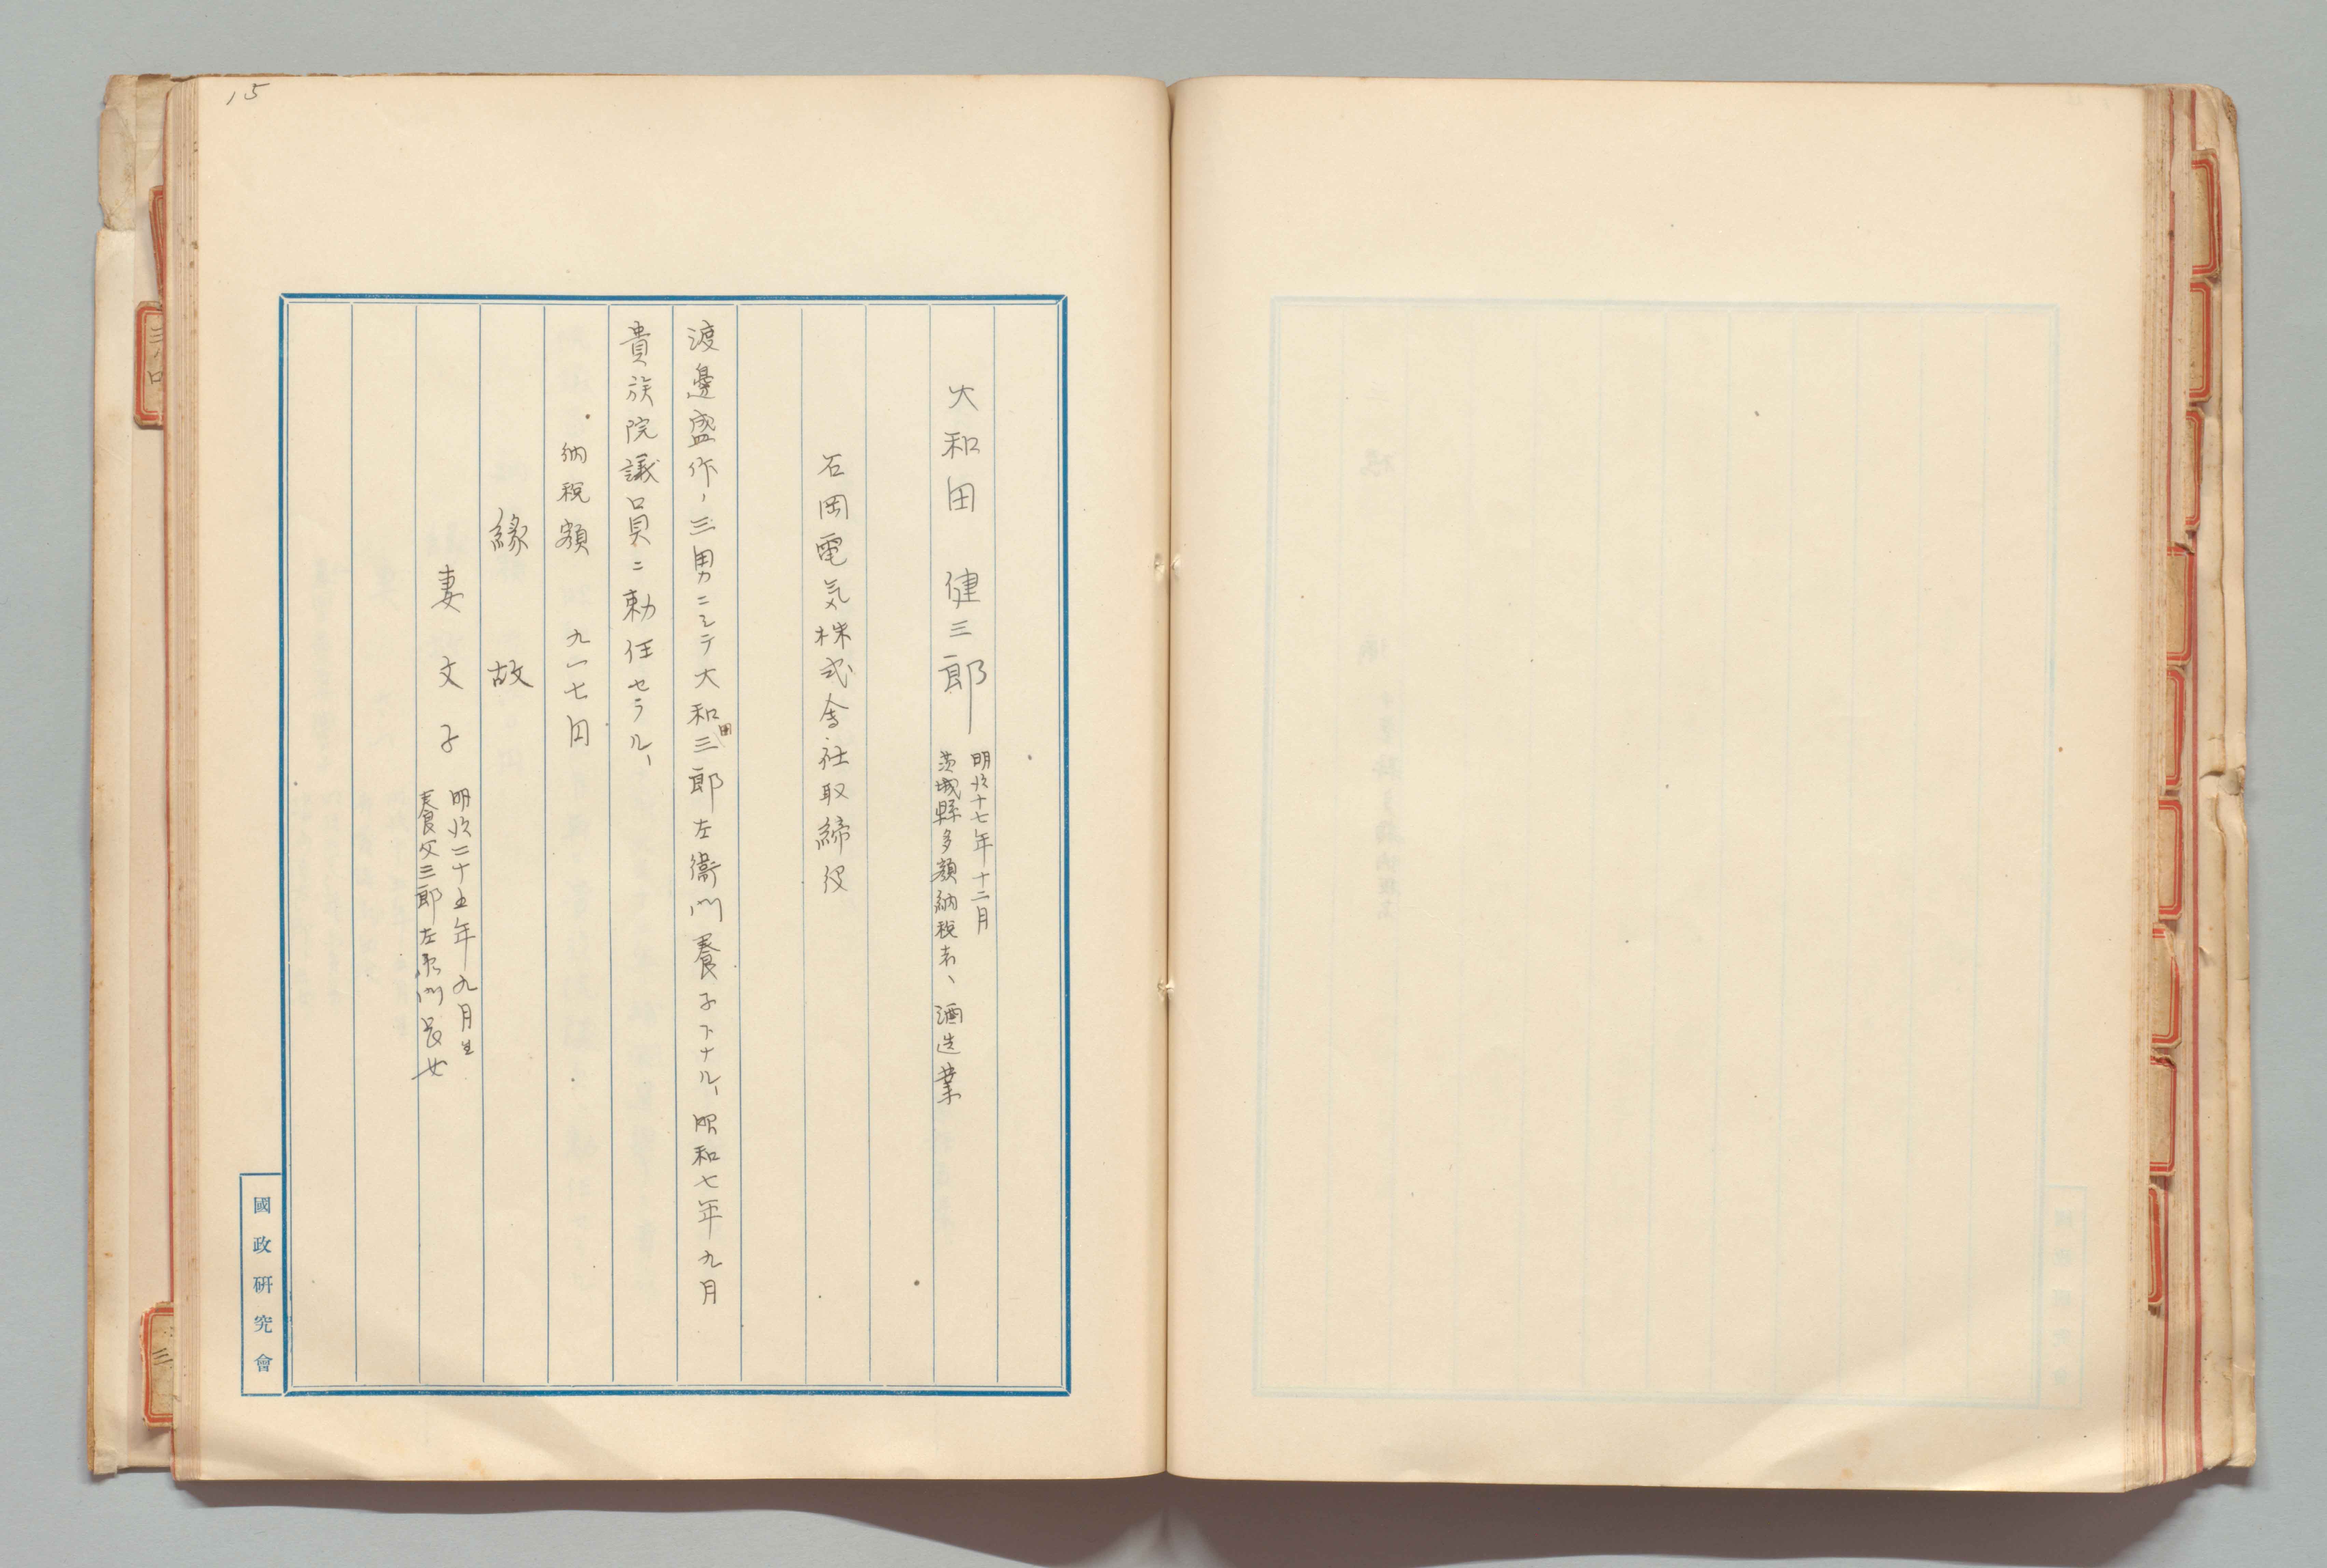 15
大和田 健三郎
明治十七年十二月
茨城縣多額納税者、酒造業
石岡電気株式会社取締役
渡邊盛作ノ三男ニシテ大和田三郎左衞門養子トナル、昭和七年九月
貴族院議員ニ勅任セラル、
納税額 九一七円
緣故
妻 文子
明治二十五年九月生
養父三郎左衛門長女
國政研究會